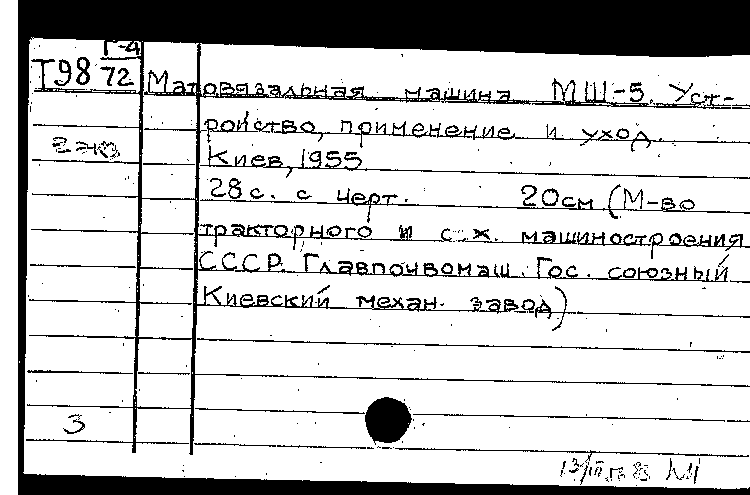 Г-4
Т98 72 Матовязальная машина МШ-5. Уст-
ройство, применение и уход.
Киев, 1955
28с. с черт. 20см (М-во
тракторного и с.х. машиностроения
СССР. Главпочвомаш. Гос. союзный
Киевский механ. завод)
3